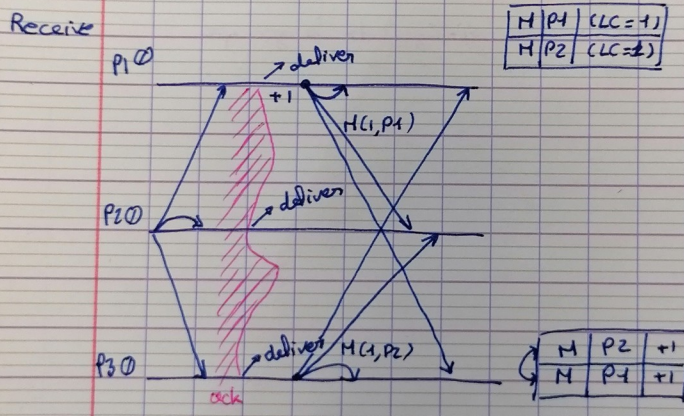 Receive
M P1 (LC=1)
M P2 (LC=1)
P1 ①
deliver
+1
M(1,P1)
P2 ①
deliver
P3 ①
deliver
M(1,P2)
ack
M P2 +1
M P1 +1